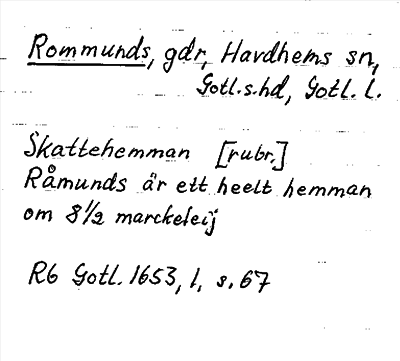 Rommunds, gdr, Havdhems sn,
Gotl.s.hd, Gotl. l.
Skattehemman [rubr.]
Råmunds är ett heelt hemman
om 8 1/2 marckeleij
R6 Gotl. 1653, 1, s. 67